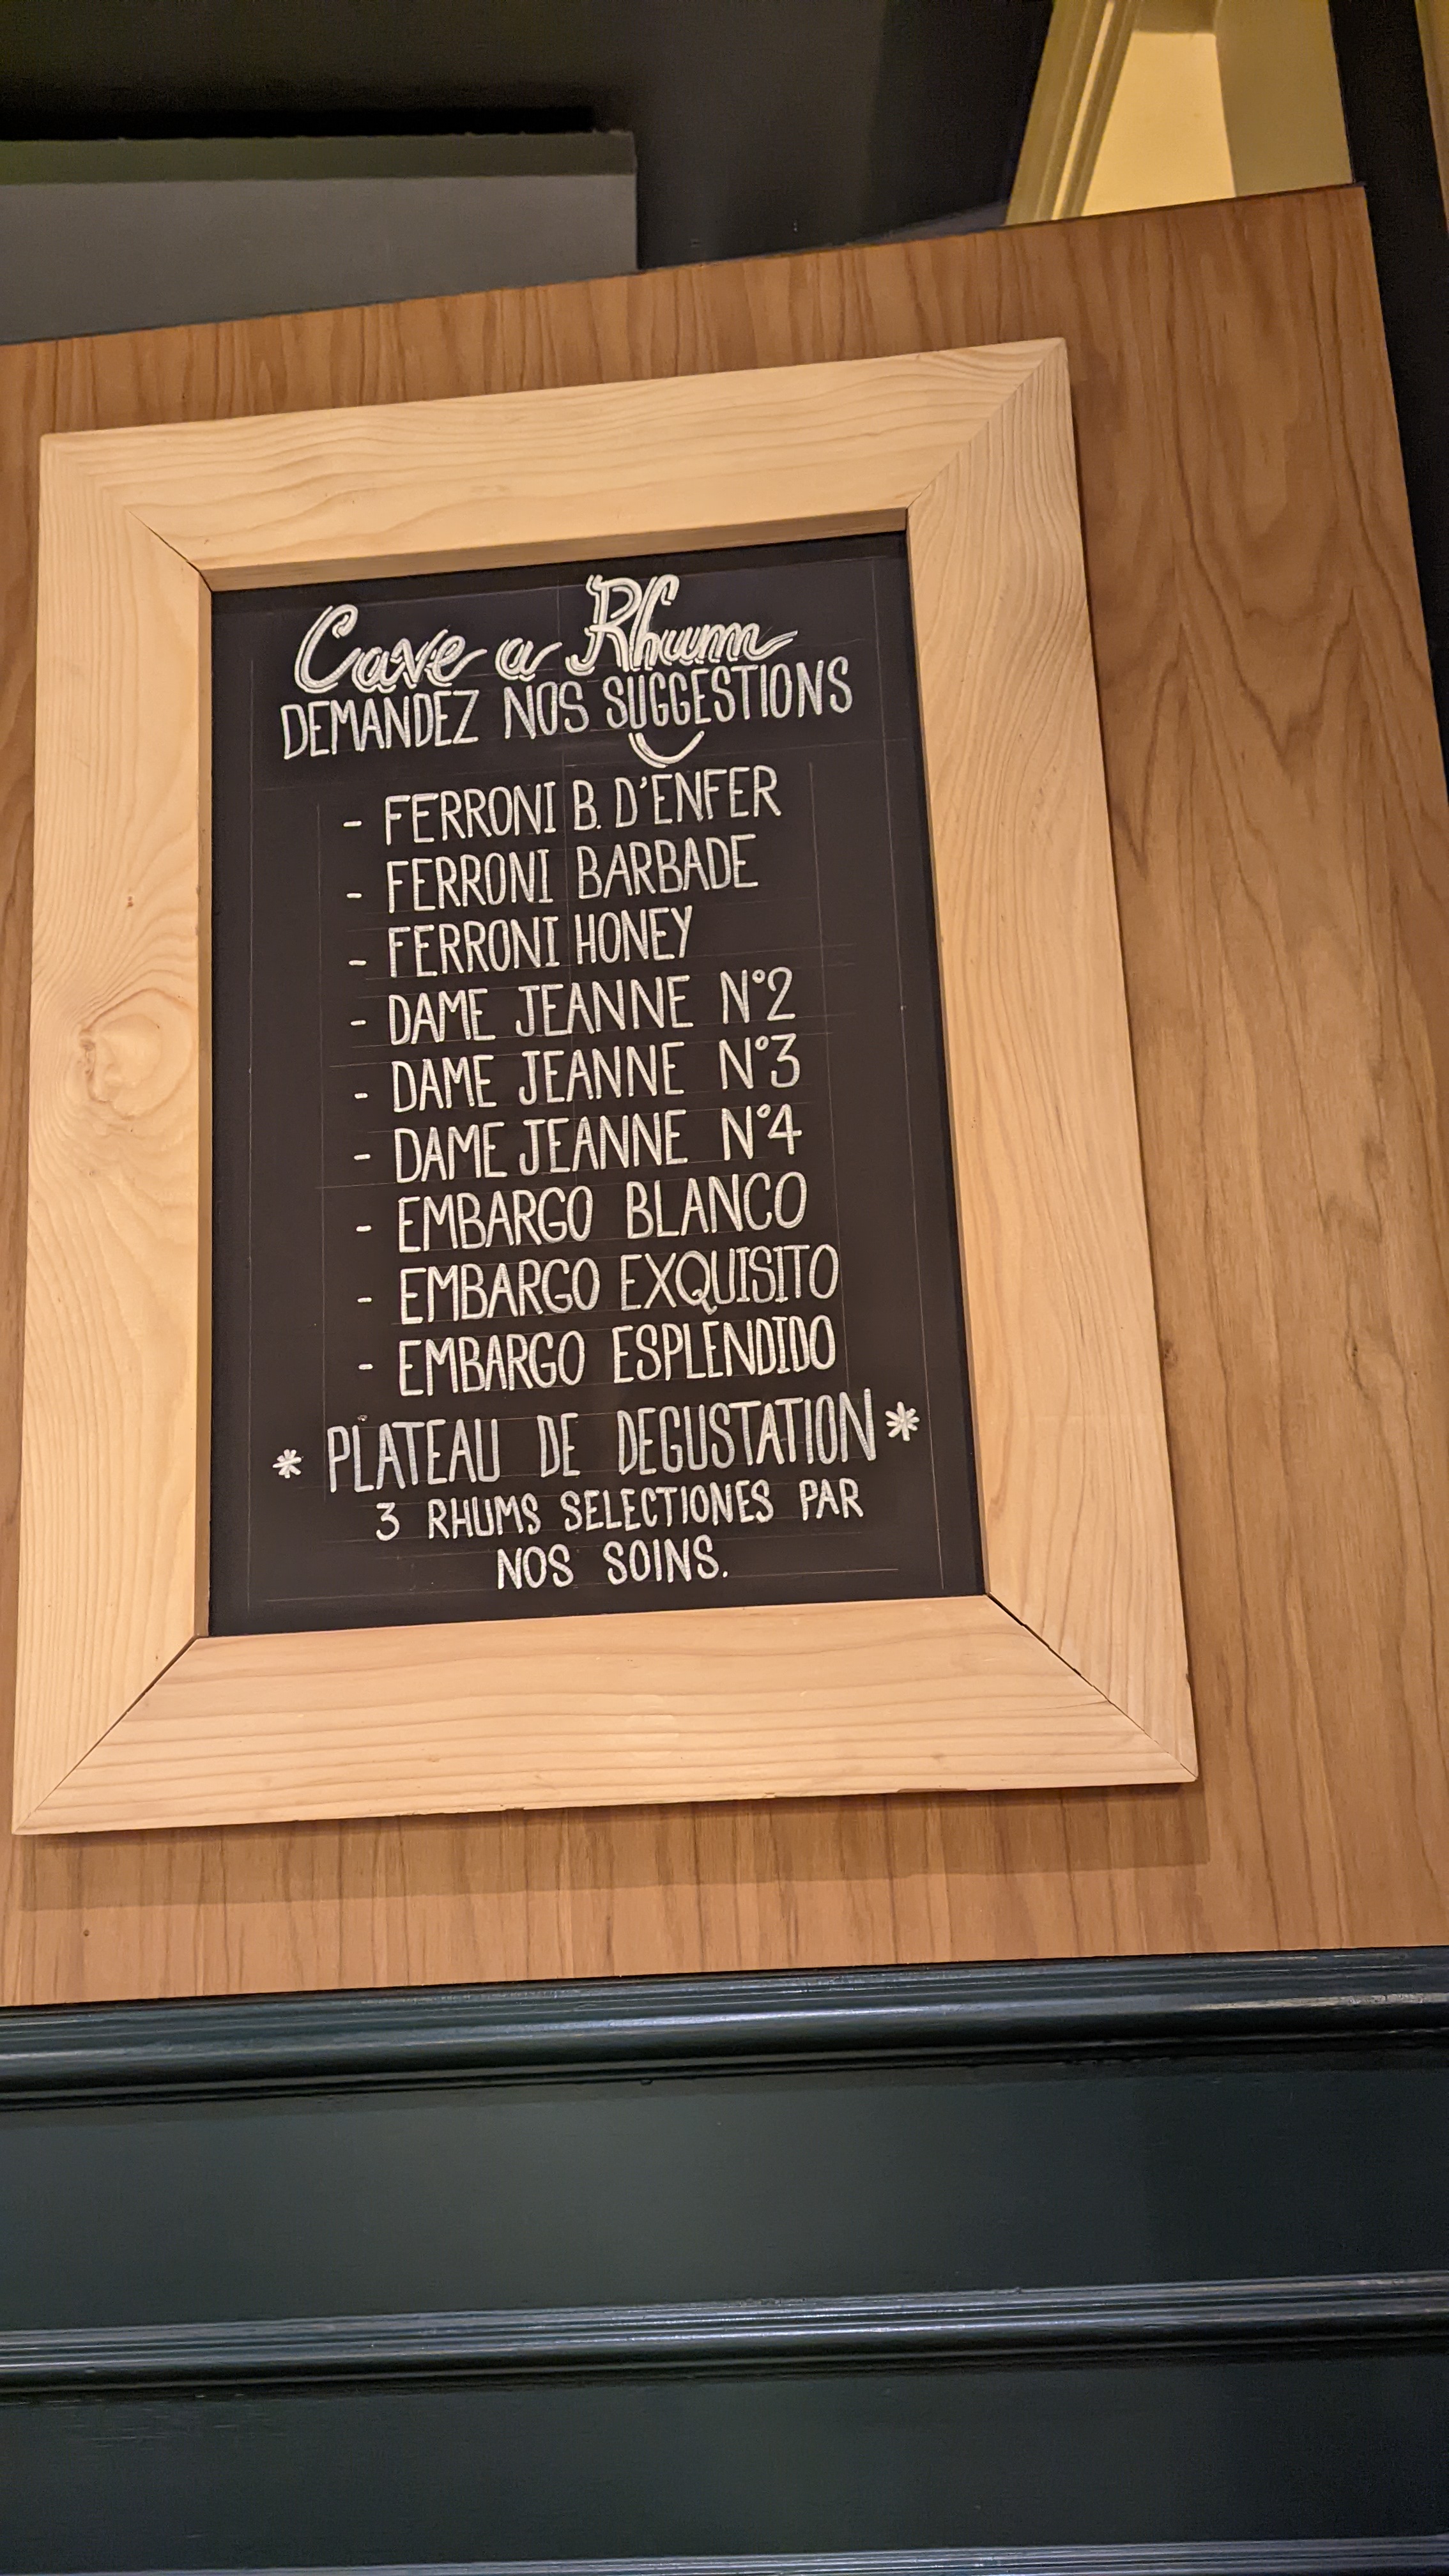 Cave a Rhum
DEMANDEZ NOS SUGGESTIONS
- FERRONI B. D'ENFER
- FERRONI BARBADE
- FERRONI HONEY
- DAME JEANNE N°2
- DAME JEANNE N°3
- DAME JEANNE N°4
- EMBARGO BLANCO
- EMBARGO EXQUISITO
- EMBARGO ESPLENDIDO
* PLATEAU DE DEGUSTATION *
3 RHUMS SELECTIONES PAR
NOS SOINS.